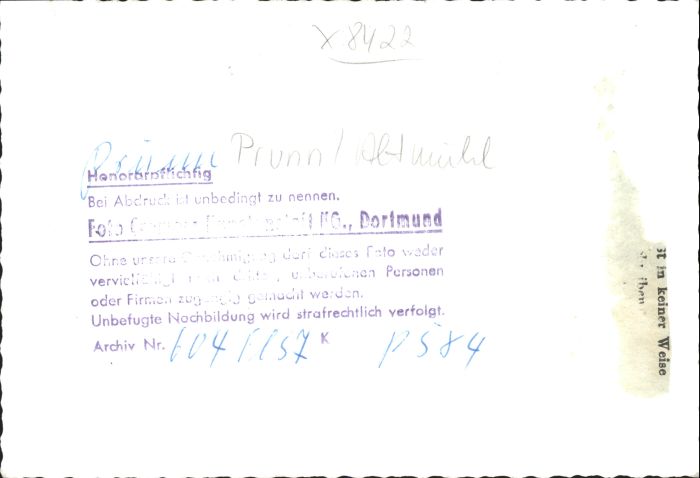 X 8422
Prunn / Altmühl
Honorarpflichtig
Bei Abdruck ist unbedingt zu nennen.
Foto KG., Dortmund
Ohne unsere Genehmigung darf dieses Foto weder
vervielfältigt noch dritten, unberufenen Personen
oder Firmen zugängig gemacht werden.
Unbefugte Nachbildung wird strafrechtlich verfolgt.
Archiv Nr. K p 584
st in keiner Weise